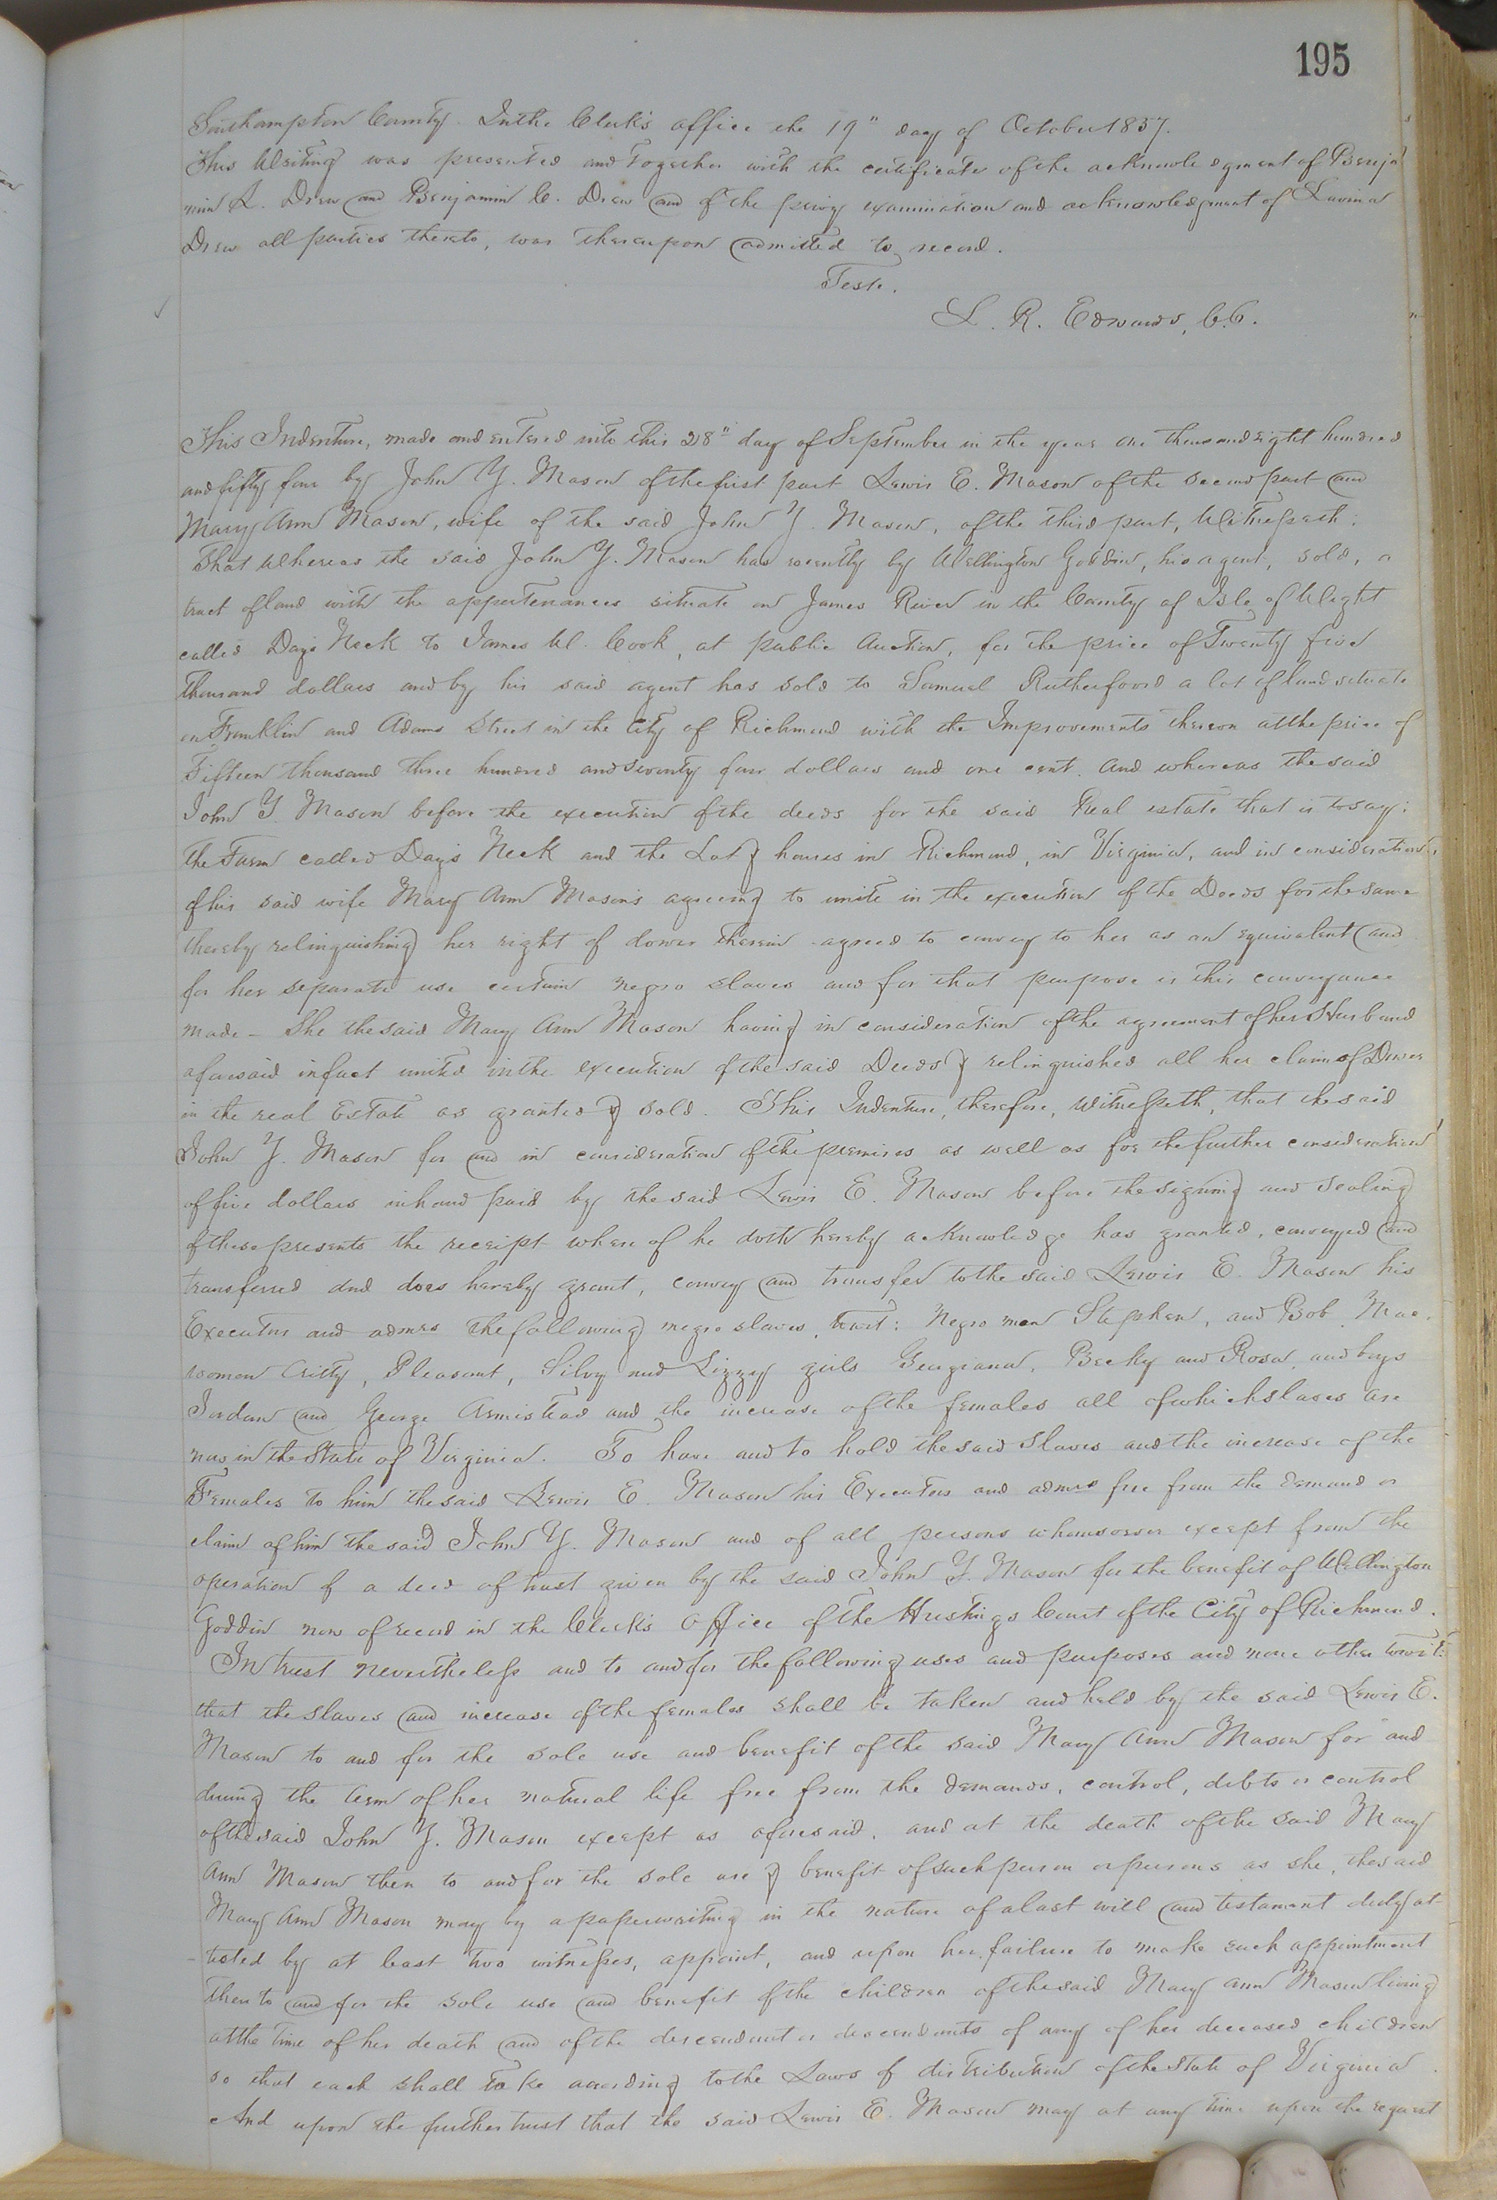 195
Southampton County. In the Clerk's office the 19" day of October 1857.
This Writing was presented and together with the certificate of the acknowledgment of Benja
min L. Drew and Benjamin C. Drew and of the privy examination and acknowledgment of Lavinia
Drew all parties thereto, was thereupon admitted to record.
Teste.
L. R. Edwards, C.C.
This Indenture, made and entered into this 28" day of September in the year one thousand eight hundred
and fifty four by John Y. Mason of the first part Lewis E. Mason of the second part and
Mary Ann Mason, wife of the said John Y. Mason, of the third part, Witnesseth:
That Whereas the said John Y. Mason has recently by Wellington Goddin, his agent, sold, a
tract of land with the appertenances situate on James River in the County of Isle of Wight
called Day's Neck to James W. Cook, at public Auction, for the price of Twenty five
thousand dollars and by his said agent has sold to Samuel Rutherfoord a lot of land situate
on Franklin and Adams Street in the City of Richmond with the Improvements thereon at the price of
Fifteen thousand three hundred and seventy four dollars and one cent. And whereas the said
John Y. Mason before the execution of the deeds for the said Real estate that is to say:
the Farm called Day's Neck and the Lot & houses in Richmond, in Virginia, and in consideration
of his said wife Mary Ann Mason's agreeing to unite in the execution of the Deeds for the same
thereby relinquishing her right of dower therein agreed to convey to her as an equivalent and
for her separate use certain negro slaves and for that purpose is this conveyance
made - She the said Mary Ann Mason having in consideration of the agreement of her Husband
aforesaid in fact united in the execution of the said Deeds & relinquished all her claim of Dower
in the real Estate as granted & sold. This Indenture, therefore, Witnesseth, that the said
John Y. Mason for and in consideration of the premises as well as for the further consideration
of five dollars in hand paid by the said Lewis E. Mason before the signing and sealing
of these presents the receipt where of he doth hereby acknowledge has granted, conveyed and
transferred and does hereby grant, convey and transfer to the said Lewis E. Mason his
Executors and admrs the following negro slaves, towit: Negro men Stephen, and Bob
women Critty, Pleasant, Silvy and Lizzy girls Georgiana, Becky and Rosa, and boys
Jordan and George Armistead and the increase of the females all of which slaves are
now in the State of Virginia. To have and to hold the said slaves and the increase of the
Females to him the said Lewis E. Mason his Executors and admrs free from the demand or
claim of him the said John Y. Mason and of all persons whomsoever except from the
operation of a deed of trust given by the said John Y. Mason for the benefit of Wellington
Goddin now of record in the Clerk's Office of the Hustings Court of the City of Richmond.
In trust nevertheless and to and for the following uses and purposes and none other towit:
that the slaves and increase of the females shall be taken and held by the said Lewis E.
Mason to and for the sole use and benefit of the said Mary Ann Mason for and
during the term of her natural life free from the demands, control, debts or control
of the said John Y. Mason except as aforesaid, and at the death of the said Mary
Ann Mason then to and for the sole use & benefit of such person or persons as she, the said
Mary Ann Mason may by a paper writing in the nature of a last will and testament duly at
tested by at least two witnesses, appoint, and upon her failure to make such appointment
then to and for the sole use and benefit of the children of the said Mary Ann Mason living
at the time of her death and of the descendant or descendants of any of her deceased children
so that each shall take according to the Laws of distribution of the State of Virginia.
And upon the further trust that the said Lewis E. Mason may at any time upon the request